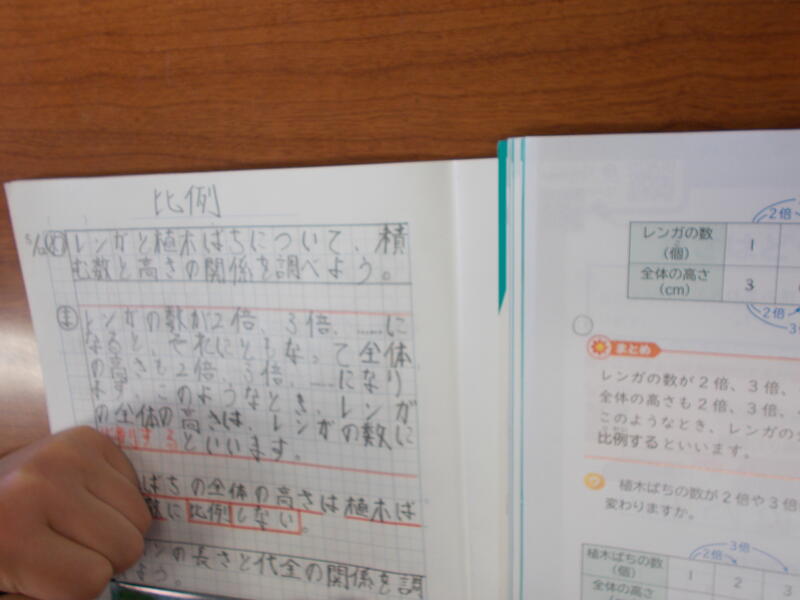 比例
5/12
め
レンガと植木ばちについて、積
む数と高さの関係を調べよう。
ま
レンガの数が2倍、3倍、……に
なると、それにともなって全体
の高さも2倍、3倍、……になり
ます。このようなとき、レンガ
の全体の高さは、レンガの数に
例するといいます。
ばちの全体の高さは植木ば
数に比例しない。
の長さと代金の関係を調
よう。
2倍
レンガの数
(個)
1
全体の高さ
(cm)
3
2倍
まとめ
レンガの数が2倍、3倍、
全体の高さも2倍、3倍、
このようなとき、レンガの
比例するといいます。
植木ばちの数が2倍や3倍
変わりますか。
3倍
2倍
植木ばちの数
(個)
1 2 3
全体の高さ